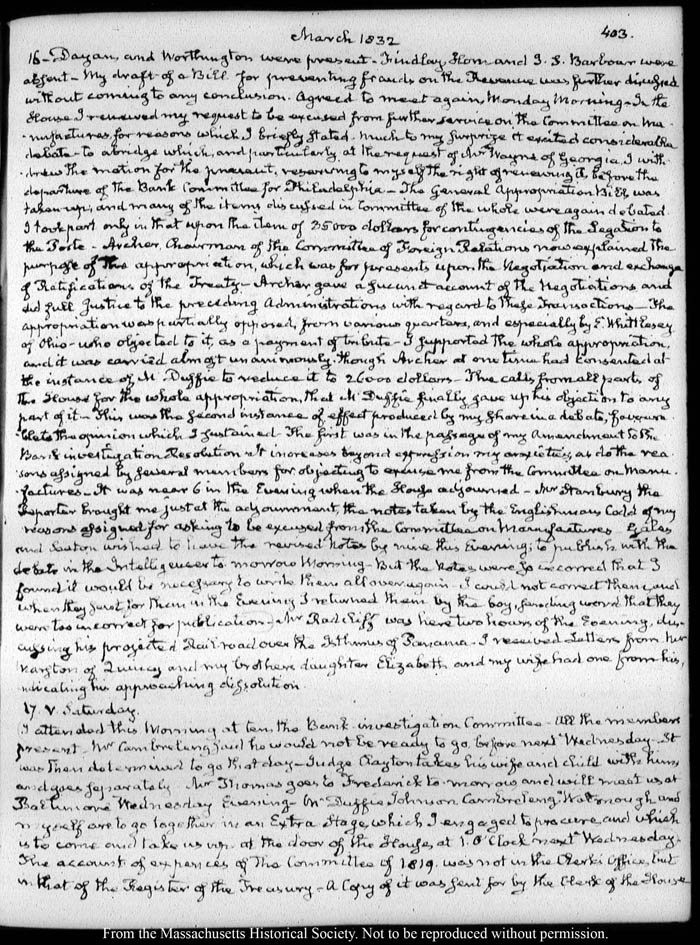 March 1832
403.
16 – Dayan, and Worthington were present – Findlay, Horn and J. S. Barbour were
absent – My draft of a Bill for preventing frauds on the Revenue was further discussed
without coming to any conclusion. Agreed to meet again Monday Morning – In the
House I renewed my request to be excused from further service on the Committee on Ma-
nufactures, for reasons which I briefly stated. Much to my surprize it excited considerable
debate – to abridge which, and particularly, at the request of Mr Wayne of Georgia, I with-
drew the motion for the present, reserving to myself the right of renewing it, before the
departure of the Bank Committee for Philadelphia – The General Appropriation Bill, was
taken up; and many of the items discussed in Committee of the whole were again debated.
I took part only in that upon the item of 35000 dollars for contingencies of the Legation to
the Porte – Archer, Chairman of the Committee of Foreign Relations now explained the
purpose of the appropriation, which was for presents upon the Negotiation and exchange
of Ratifications of the Treaty – Archer gave a succinct account of the Negotiations, and
did full Justice to the preceding Administrations with regard to these Transactions – The
appropriation was partially opposed, from various quarters, and especially by E. Whittlesey
of Ohio – who objected to it, as a payment of tribute – I supported the whole appropriation,
and it was carried almost unanimously. Though Archer at one time had consented at
the instance of Mc Duffie to reduce it to 26000 dollars – The calls from all parts of
the House for the whole appropriation, that Mc Duffie finally gave up his objection to any
part of it – This was the second instance of effect produced by my share in a debate, favoura-
ble to the opinion which I sustained – The first was in the passage of my Amendment to the
Bank investigation Resolution – It increases beyond expression my anxiety; as do the rea-
sons assigned by several members for objecting to excuse me from the Committee on Manu-
factures – It was near 6 in the Evening when the House adjourned – Mr Stansbury the
Reporter brought me just at the adjournment, the notes taken by the Englishman Cold of my
reasons assigned for asking to be excused from the Committee on Manufactures Gales
and Seaton wished to have the revised Notes by nine this Evening; to publish with the
debate in the Intelligencer to morrow Morning – But the Notes were so incorrect that I
found it would be necessary to write them all over again – I could not correct them, and
when they sent for them in the Evening I returned them by the boy, sending word that they
were too incorrect for publication – Mr Radcliff was here two hours of the Evening, dis-
cussing his projected Railroad over the Isthmus of Panama – I received Letters from Mr
of Quincy and my brothers daughter Elizabeth and my wife had one from his,
indicating his approaching dissolution.
17. V. Saturday.
I attended this Morning at ten the Bank investigation Committee – All the members
present – Mr Cambreleng said he would not be ready to go, before next Wednesday – It
was then determined to go that day – Judge Clayton takes his wife and child with him,
and goes separately Mr Thomas goes to Frederick to-morrow and will meet us at
Baltimore Wednesday Evening Mc Duffie Johnson Cambreleng Watmough and
myself are to go together in an Extra Stage which I engaged to procure and which
is to come and take us up at the door of the House, at 1. O'Clock next Wednesday –
The account of expences of the Committee of 1819, was not in the Clerk's Office, but
in that of the Register of the Treasury – A Copy of it was sent for by the Clerk of the House
From the Massachusetts Historical Society. Not to be reproduced without permission.